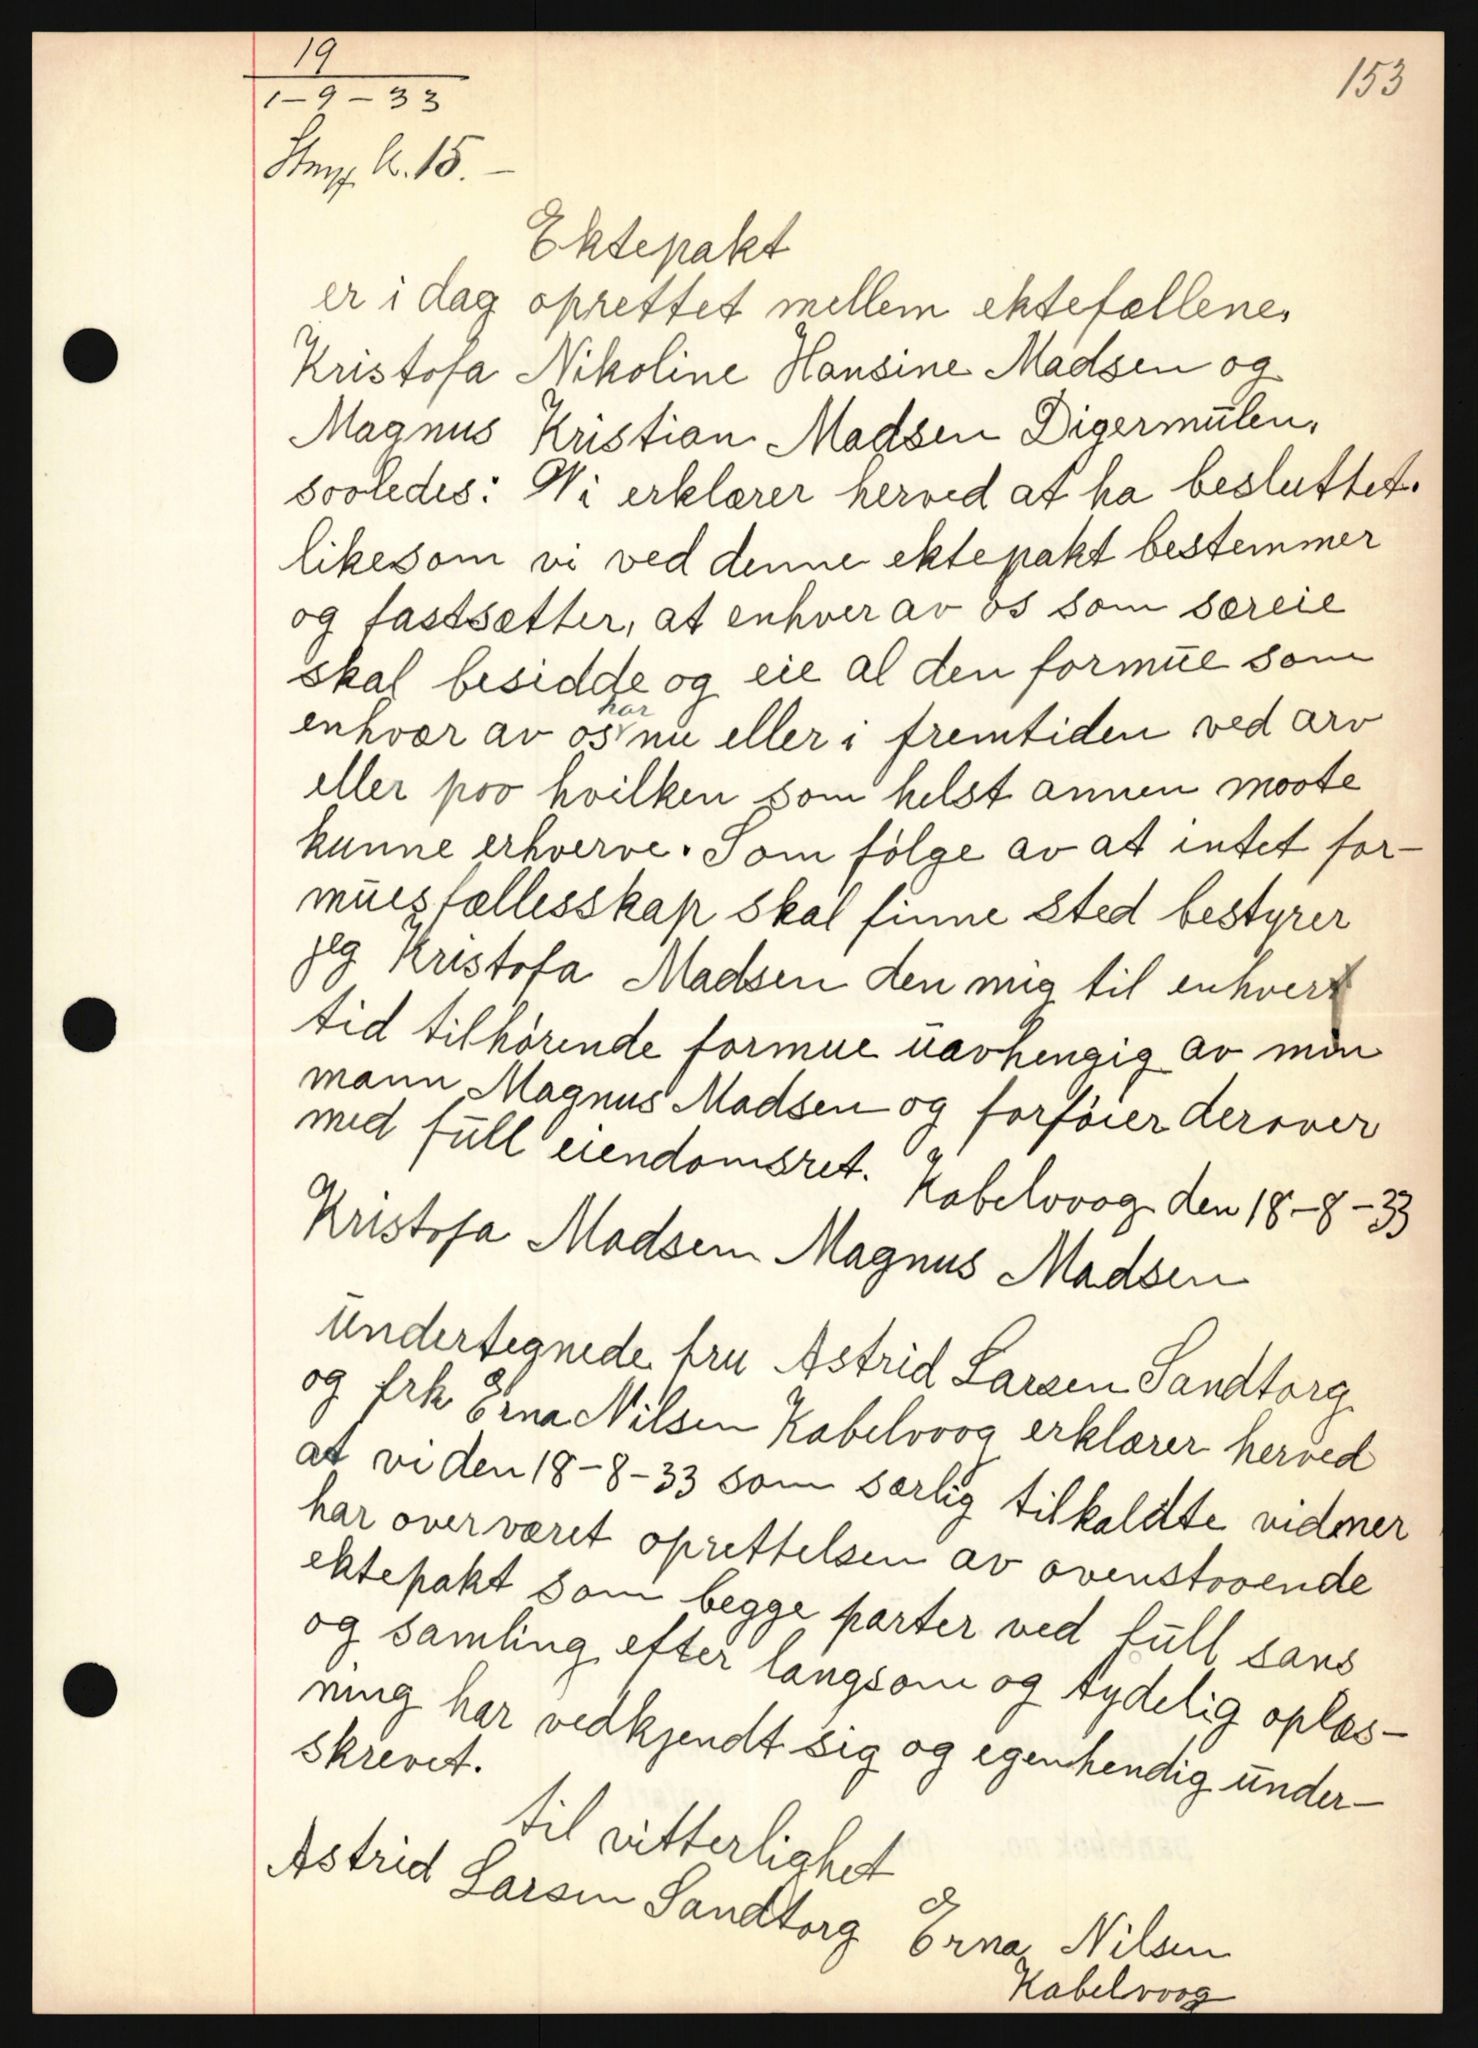 19
1-9-33
153
Stmp. kr. 15.-
Ektepakt
er i dag oprettet mellem ektefællene,
Kristofa Nikoline Hansine Madsen og
Magnus Kristian Madsen Digermulen,
saaledes: Vi erklærer herved at ha besluttet.
likesom vi ved denne ektepakt bestemmer
og fastsætter, at enhver av os som særeie
skal besidde og eie al den formue som
enhvær av os har nu eller i fremtiden ved arv
eller paa hvilken som helst annen maate
kunne erhverve. Som følge av at intet for-
muesfællesskap skal finne sted bestyrer
jeg Kristofa Madsen den mig til enhver
tid tilhørende formue uavhengig av min
mann Magnus Madsen og forføier derover
med full eiendomsret. Kabelvaag den 18-8-33
Kristofa Madsen Magnus Madsen
Undertegnede fru Astrid Larsen Sandtorg
og frk Erna Nilsen Kabelvaag erklærer herved
at vi den 18-8-33 som særlig tilkaldte vidner
har overværet oprettelsen av ovenstaaende
ektepakt som begge parter ved full sans
og samling efter langsom og tydelig oplæs-
ning har vedkjendt sig og egenhendig under-
skrevet.
til vitterlighet
Astrid Larsen Sandtorg Erna Nilsen
Kabelvaag